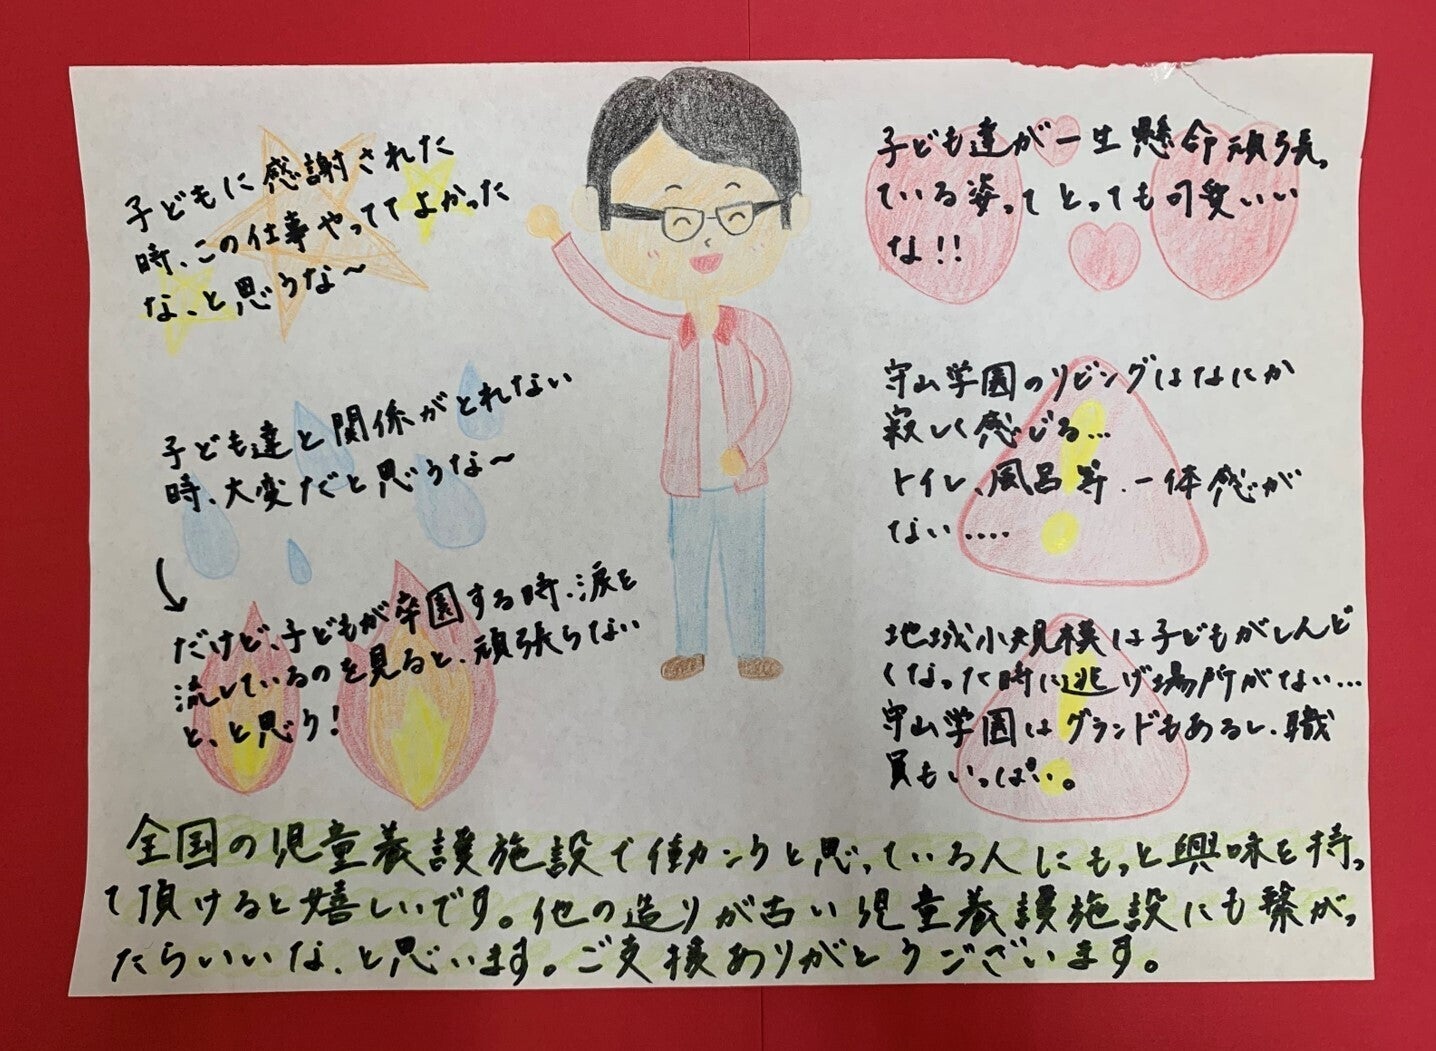 子どもに感謝された
時、この仕事やっててよかった
な、と思うな～
子ども達と関係がとれない
時、大変だと思うな～
だけど、子どもが卒園する時、涙を
流しているのを見ると、頑張らない
と、と思う!
子ども達が一生懸命頑張っ
ている姿ってとっても可愛いい
な!!
守山学園のリビングはなにか
寂しく感じる…
トイレ、風呂等、一体感が
ない….
地域小規模は子どもがしんど
くなった時に逃げ場所がない…
守山学園はグランドもあるし、職
員もいっぱい。
全国の児童養護施設で働こうと思っている人にもっと興味を持っ
て頂けると嬉しいです。他の造りが古い児童養護施設にも繋がっ
たらいいな、と思います。ご支援ありがとうございます。